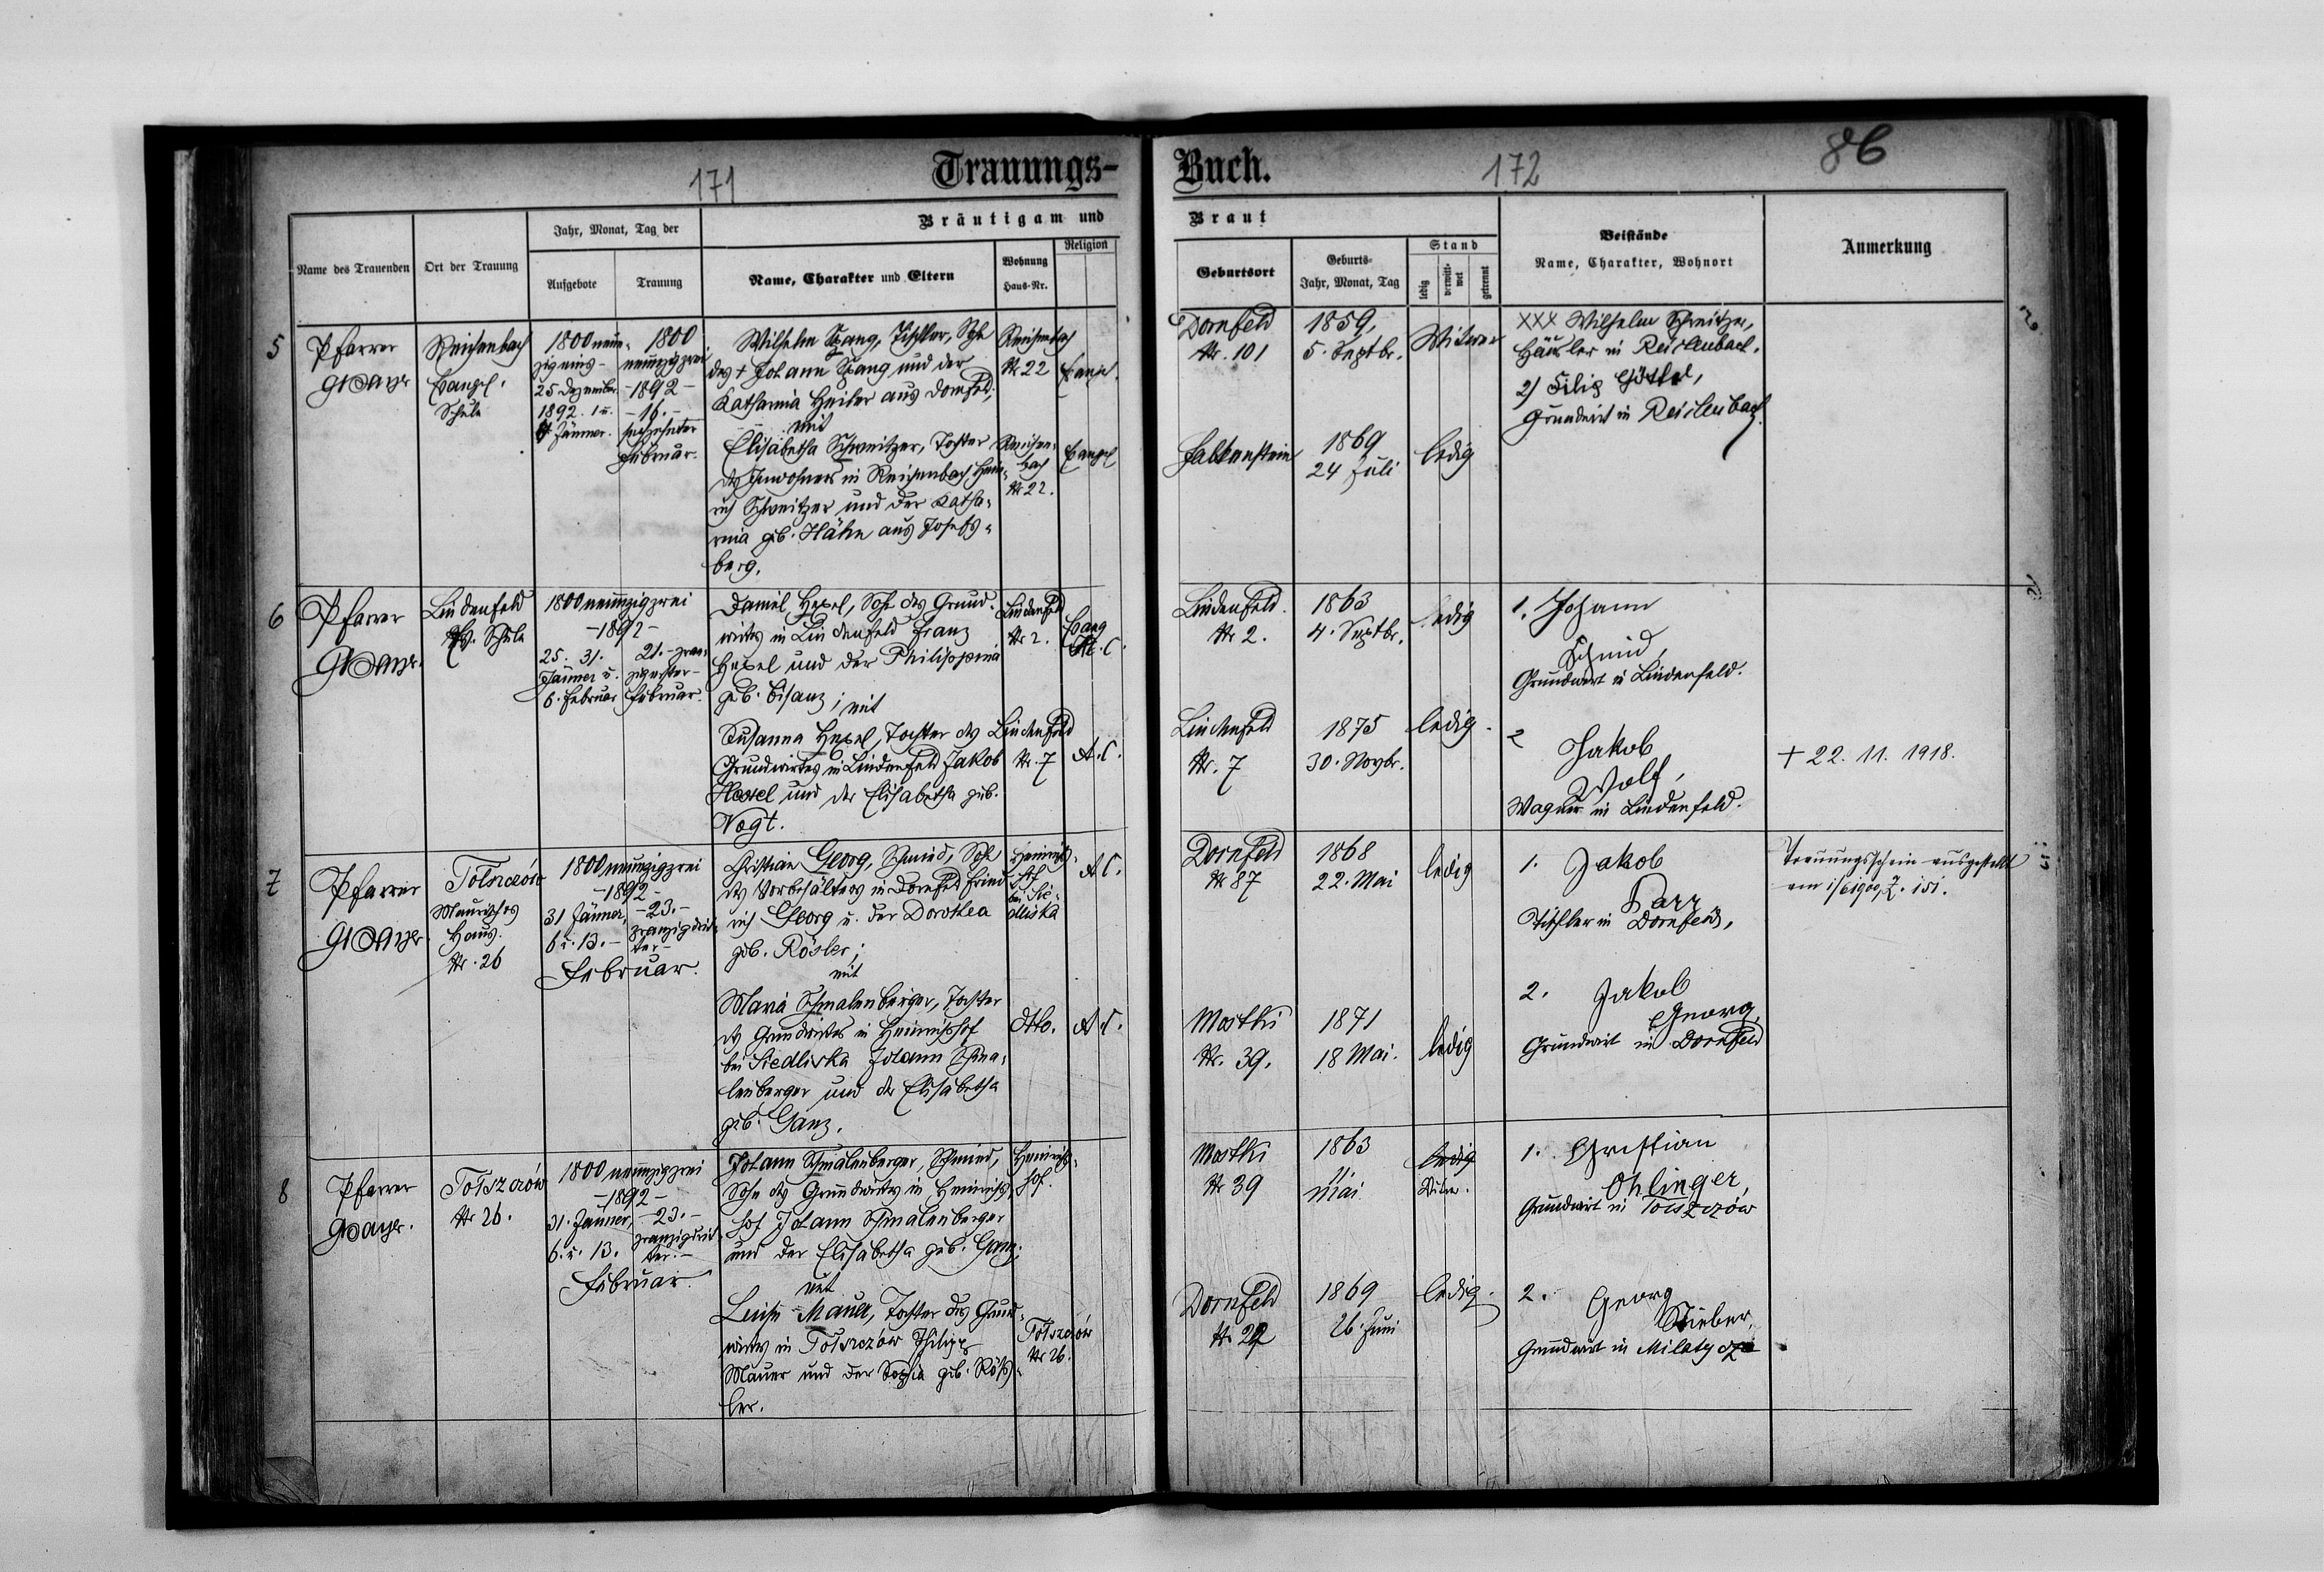 171
Trauungs-
Buch.
172
86
Name des Trauenden
Ort der Trauung
Jahr, Monat, Tag der
Aufgebote
Trauung
Bräutigam und
Name, Charakter und Eltern
Wohnung
Haus-Nr.
Religion
Braut
Geburtsort
Geburts-
Jahr, Monat, Tag
Stand
ledig
verwitt-
wet
getrennt
Beistände
Name, Charakter, Wohnort
Anmerkung
5
Pfarrer
Reichenbach
Evangel.
Schule
1800 neun-
zig eins-
25 Dezember
1892. 1 u.
Jänner.
1800
neunzig zwei
-1892-
-16.-
sechzehnter
Februar.
Wilhelm Spang, Tischler, Sohn
des + Johann Spang und der
Katharina Heiler aus Dornfeld,
mit
Elisabetha Schweitzer, Tochter
des Inwohners in Reichenbach Hein-
rich Schweitzer und der Katha-
rina geb. Hähn aus Josefs-
berg.
Reichenbach
Nr 22
Evangel.
Reichen-
bach
Nr 22.
Evangel
Dornfeld
Nr. 101
1859,
5. Septbr.
Witwer
Falkenstein
1869
24 Juli
ledig
XXX Wilhelm Schweitzer,
Häusler in Reichenbach.
2) Filip
Grundwirt in Reichenbach
6
Pfarrer
Lindenfeld
Ev. Schule
1800 neunzig zwei
-1892-
25. 31.
Jänner u.
6. Februar
21.- zwan-
zigerster-
Februar.
Daniel Hexel, Sohn des Grund-
wirtes in Lindenfeld Franz
Hexel und der Philippina
geb. Bisanz; mit
Susanna Hexel, Tochter des
Grundwirtes in Lindenfeld Jakob
Hexel und der Elisabetha geb.
Vogt.
Lindenfeld
Nr 2.
Evang
A. C.
Lindenfeld
Nr. 7
A. C.
Lindenfeld.
Nr 2.
1863
4. Septbr.
ledig
Lindenfeld
Nr. 7
1875
30. Novbr.
ledig.
1. Johann
Schmid,
Grundwirt in Lindenfeld.
2 Jakob
Wolf,
Wagner in Lindenfeld.
+ 22. 11. 1918.
7
Pfarrer
Tolszczów
Maurisches
Haus.
Nr. 26
1800 neunzig zwei
-1892-
31 Jänner,
6 u. 13.-
-23.-
zwanzigdrit-
ter-
Februar.
Christian Georg, Schmied, Sohn
des Vorbehälters in Dornfeld Fried-
rich Georg u. der Dorothea
geb. Rösler;
mit
Maria Schmalenberger, Tochter
des Grundwirtes in Heinrichshof
bei Siedliska Johann Schma-
lenberger und der Elisabetha
geb. Ganz.
Heinrichs-
hof
bei Sie-
dliska
A C.
dtto.
A. C.
Dornfeld
Nr 87
1868
22. Mai
ledig
Mostki
Nr. 39.
1871
18 Mai.
ledig
1. Jakob
Parr
Tischler in Dornfeld,
2. Jakob
Georg,
Grundwirt in Dornfeld
Trauungsschein ausgestellt
8
Pfarrer
Tolszczów
Nr 26.
1800 neunzig zwei
-1892-
31. Jänner,
6. u. 13.
-23.-
zwanzigdrit-
ter.-
Februar.
Johann Schmalenberger, Schmied,
Sohn des Grundwirtes in Heinrichs-
hof Johann Schmalenberger
und der Elisabetha geb. Ganz;
mit
Luise Mauer, Tochter des Grund-
wirtes in Tolszczów Philipp
Mauer und der Sophia geb. Röß-
ler.
Heinrichs-
hof.
Tolszczów
Nr 26.
Mostki
Nr 39
1863
11.
Mai
ledig
Witwer.
Dornfeld
Nr 22
1869
26. Juni
ledig.
1. Christian
Ohlinger,
Grundwirt in Tolszczów
2. Georg
Stieber,
Grundwirt in Milatycze